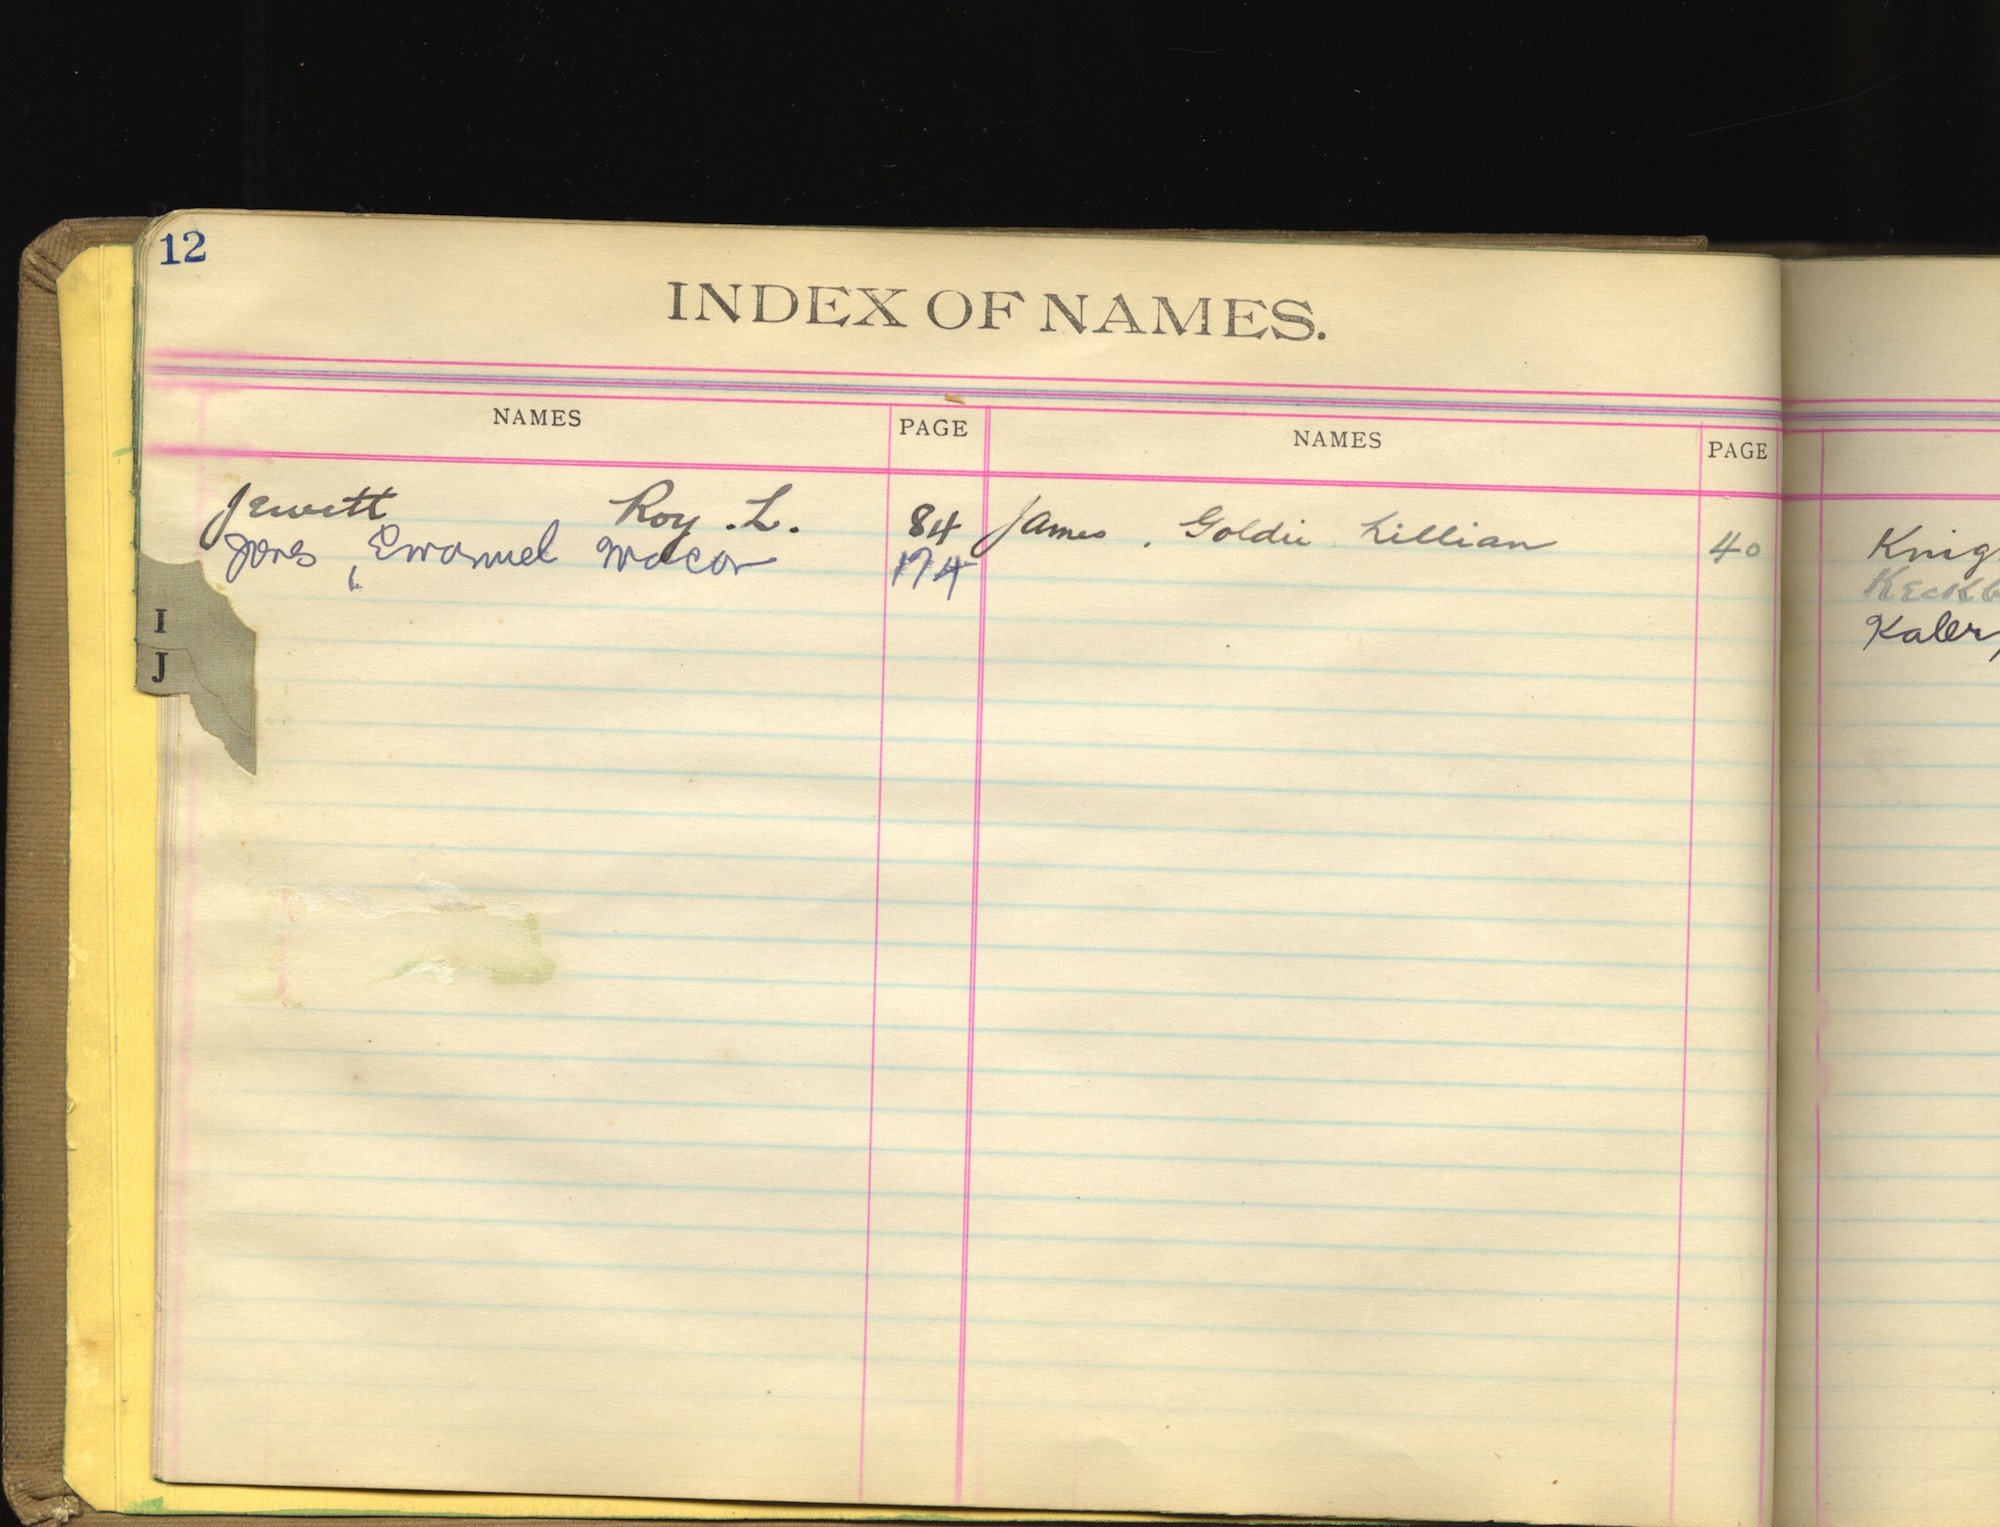 12
INDEX OF NAMES.
NAMES PAGE NAMES PAGE
Jewett Roy . L. 84 James , Goldie Lillian 40
Jones , Emanuel Macon 174
I
J
Knig
Keckb
Kaler,